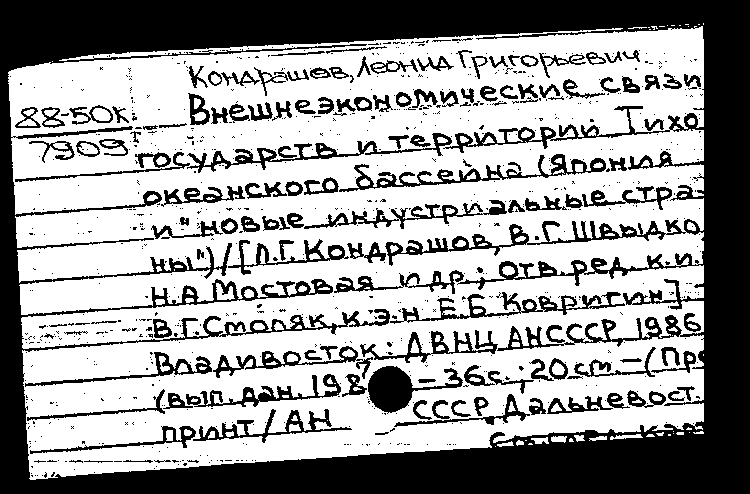 Кондрашов, Леонид Григорьевич.
88-50К Внешнеэкономические связи
7909 государств и территории Тихо
океанского бассейна (Япония
и "новые индустриальные стра-
ны")/[Л.Г. Кондрашов, В.Г. Швыдко,
Н.А Мостовая и др.; отв. ред. к.и.
В.Г. Смоляк, к.э.н Е.Б Ковригин]. -
Владивосток: ДВНЦ АНСССР, 1986
(вып. дан. 1987 – 36с.; 20см. – (Пре
принт / АН СССР, Дальневост.